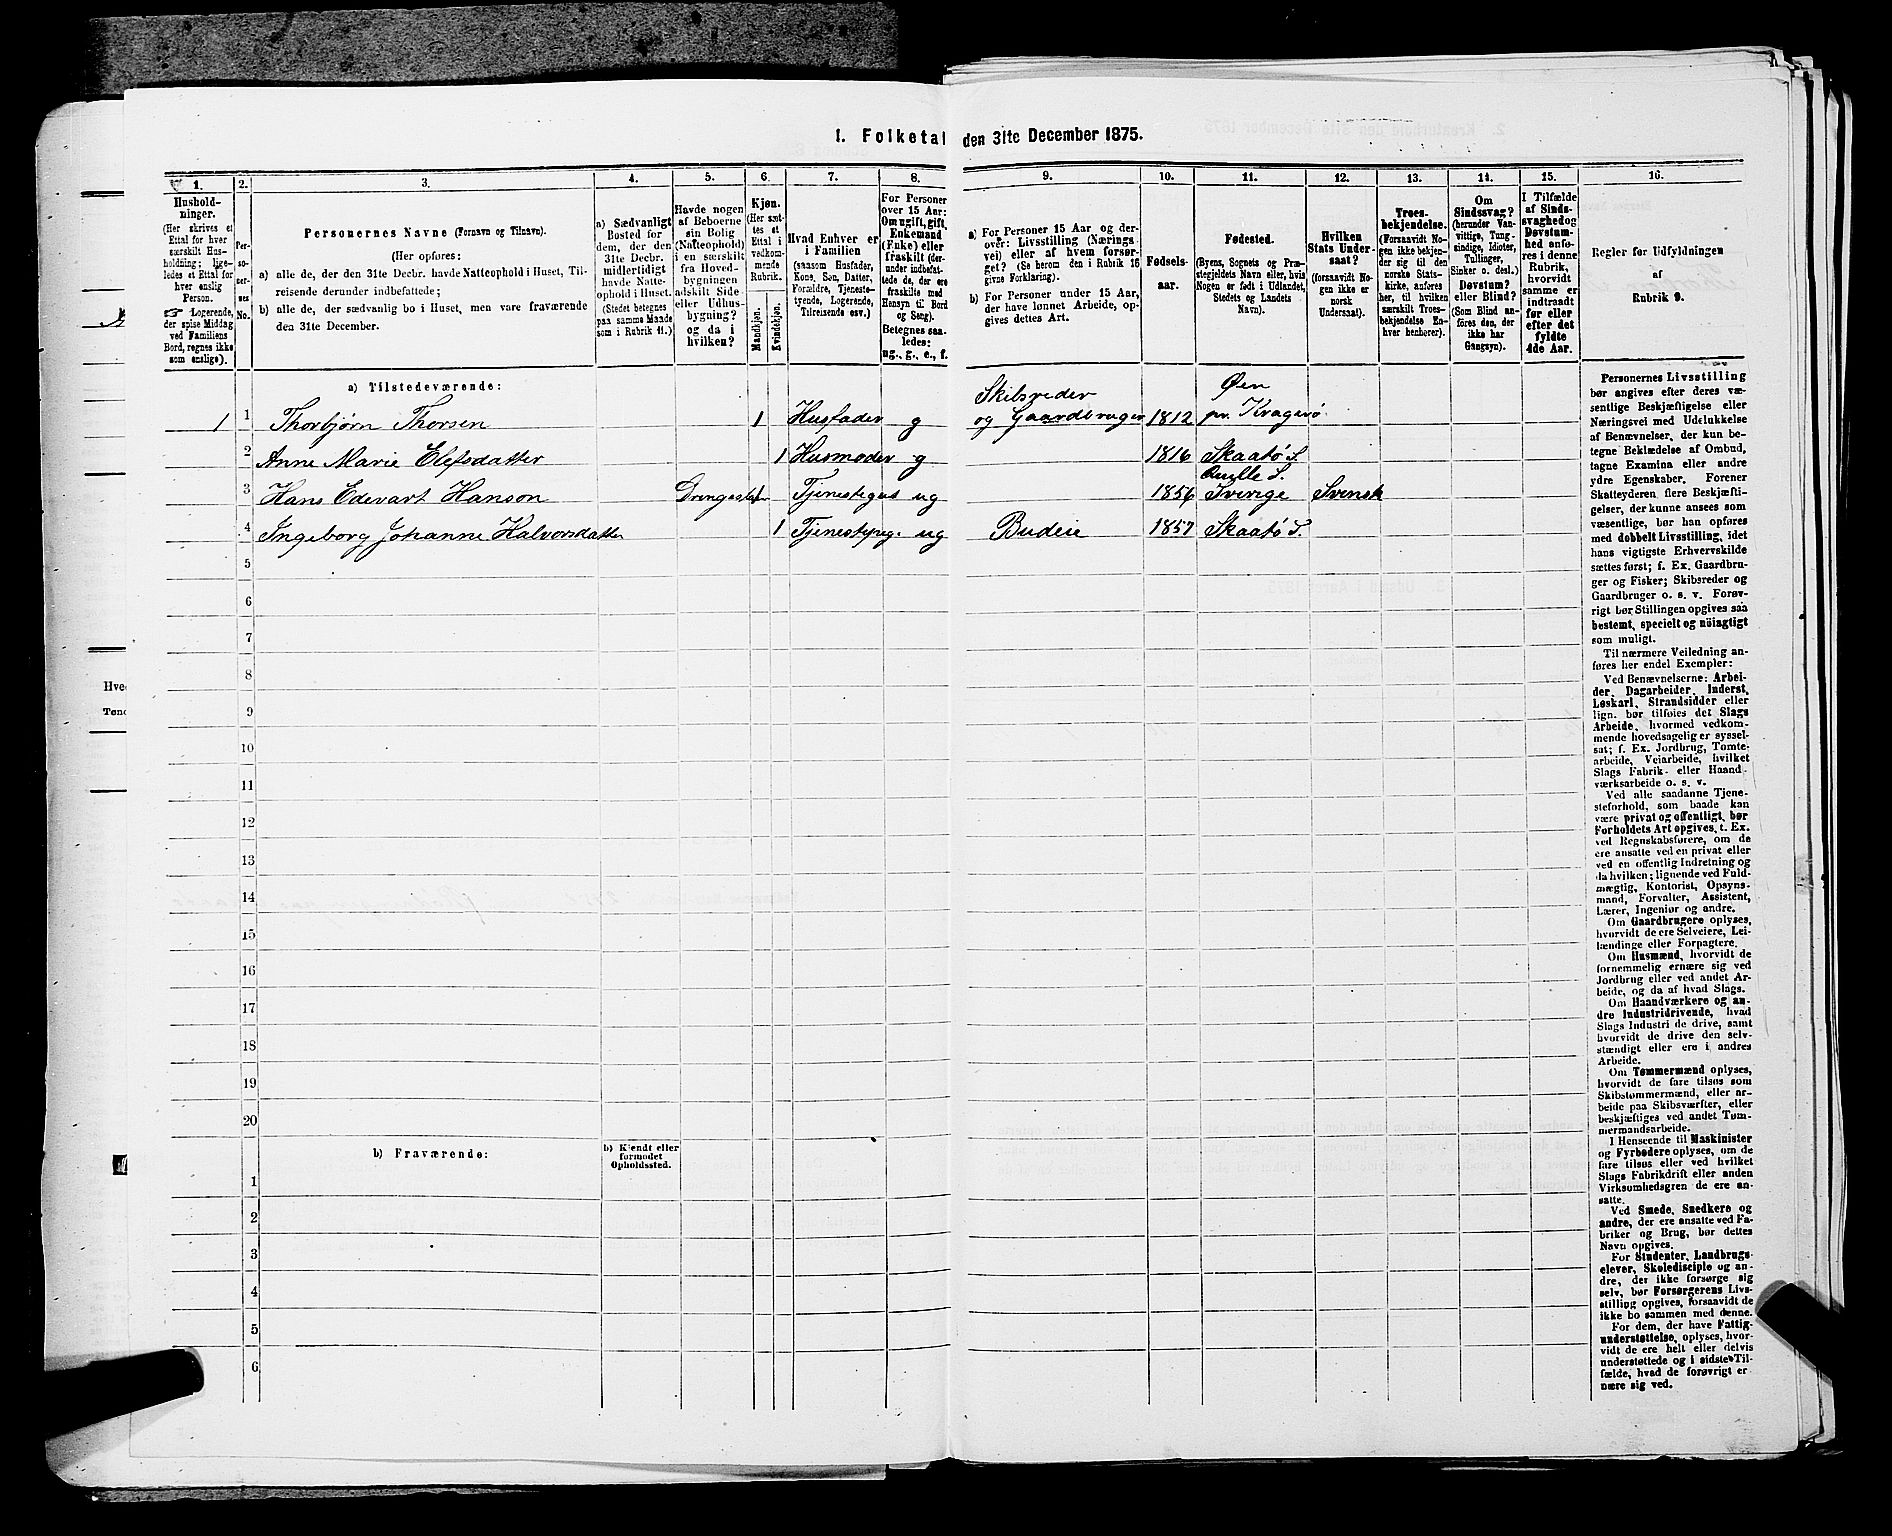 1. Folketal den 31te December 1875.
1. 2. 3. 4. 5. 6. 7. 8. 9. 10. 11. 12. 13. 14. 15. 16.
Husholdninger.
(Her skrives et
Ettal for hver
særskilt Husholdning;
ligeledes et Ettal for
hver enslig
Person.
☞ Logerende,
der spise Middag
ved Familiens
Bord, regnes ikke
som enslige).
Personernes No.
Personernes Navne (Fornavn og Tilnavn).
(Her opføres:
a) alle de, der den 31te Decbr. havde Natteophold i Huset, Tilreisende derunder indbefattede;
b) alle de, der sædvanlig bo i Huset, men vare fraværende
den 31te December.
a) Sædvanligt
Bosted for
dem, der den
31te Decbr.
midlertidigt
havde Natteophold i Huset.
(Stedet betegnes
paa samme Maade
som i Rubrik 11.)
Havde nogen
af Beboerne
sin Bolig
(Natteophold)
i en særskilt
fra Hovedbygningen
adskilt Side
eller Udhusbygning?
og da i
hvilken?
Kjøn.
(Her sættes et
Ettal i
vedkommende
Rubrik.
Mandkjøn.
Kvindekjøn.
Hvad Enhver er
i Familien
(saasom Husfader,
Kone, Søn, Datter,
Forældre, Tjenestetyende, Logerende,
Tilreisende osv.)
For Personer
over 15 Aar:
Om ugift, gift,
Enkemand
(Enke) eller
fraskilt (derunder indbefattede de, der ere
fraskilte med
Hensyn til Bord
og Seng).
Betegnes saaledes:
ug., g., e., f.
a) For Personer 15 Aar og derover: Livsstilling (Næringsvei) eller af hvem forsørget? (Se herom den i Rubrik 16
givne Forklaring).
b) For Personer under 15 Aar,
der have lønnet Arbeide, opgives dettes Art.
Fødselsaar.
Fødested.
(Byens, Sognets og Præstegjeldets Navn eller, hvis
Nogen er født i Udlandet,
Stedets og Landets
Navn).
Hvilken
Stats Undersaat?
(forsaavidt Nogen ikke er
norsk
Undersaat).
Troesbekjendelse.
(Forsaavidt Nogen ikke bekjender sig til den
norske Statskirke, anføres
her, til hvilken
særskilt Troesbekjendelse Enhver henhører).
Om
Sindssvag?
(herunder Vanvittige, Tungsindige, Idioter,
Tullinger,
Sinker o. desl.)
Døvstum?
eller Blind?
(Som Blind anføres den, der
ikke har
Gangsyn).
I Tilfælde
af Sindssvaghed og
Døvstumhed anføres i denne
Rubrik,
hvorvidt
samme er
indtraadt
før eller
efter det
fyldte
4de Aar.
Regler for Udfyldningen
af
Rubrik 9.
a) Tilstedeværende:
1 1 Thorbjørn Thorsen 1 Husfader g Skibsreder og Gaardbruger 1812 Øen pr. Kragerø
2 Anne Marie Elefsdatter 1 Husmoder g 1816 Skaatø S.
3 Hans Edevart Hanson 1 Tjenestegut ug 1856 Sverige Svensk
4 Ingeborg Johanne Halvorsdatter 1 Tjenestepig. ug Budeie 1857 Skaatø S.
5
6
7
8
9
10
11
12
13
14
15
16
17
18
19
20
b) Fraværende:
b) Kjendt eller
formodet
Opholdssted.
1
2
3
4
5
6
Personernes Livsstilling
bør angives efter deres væsentlige Beskjæftigelse eller
Næringsvei med Udelukkelse
af Benævnelser, der kun betegne Beklædelse af Ombud,
tagne Examina eller andre
ydre Egenskaber. Forener
Skatteyderen flere Beskjæftigelser, der kunne ansees som
væsentlige, bør han opføres
med dobbelt Livsstilling, idet
hans vigtigste Erhvervskilde
sættes først; f. Ex. Gaardbruger og Fisker; Skibsreder og
Gaardbruger o. s. v. Forøvrigt bør Stillingen opgives saa
bestemt, specielt og nöiagtigt
som muligt.
Til nærmere Veiledning anføres her endel Exempler:
Ved Benævnelserne: Arbeider, Dagarbeider, Inderst,
Løskarl, Strandsidder eller
lign. bør tilføies det Slags
Arbeide, hvormed vedkommende hovedsagelig er sysselsat; f. Ex. Jordbrug, Tomtearbeide, Veiarbeide, hvilket
Slags Fabrik- eller Haandværksarbeide o. s. v.
Ved alle saadanne Tjenesteforhold, som baade kan
være privat og offentligt, bør
Forholdets Art opgives, t. Ex.
ved Regnskabsførere, om de
ere ansatte ved en privat eller
ved en offentlig Indretning og
da hvilken; lignende ved Fuldmægtig, Kontorist, Opsynsmand, Forvalter, Assistent,
Lærer, Ingeniør og andre.
Om Gaardbrugere oplyses,
hvorvidt de ere Selveiere, Leilændinge eller Forpagtere.
Om Husmænd, hvorvidt de
fornemmelig ernære sig ved
Jordbrug eller ved andet Arbeide, og da af hvad Slags.
Om Haandværkere og andre Industridrivende, hvad
Slags Industri de drive, samt
hvorvidt de drive den selvstændigt eller ere i andres
Arbeide.
Om Tømmermænd oplyses,
hvorvidt de fare tilsøs som
Skibstømmermænd, eller arbeide paa Skibsværfter, eller
beskjæftiges ved andet Tømmermandsarbeide.
I Henseende til Maskinister
og Fyrbødere oplyses, om de
fare tilsøs eller ved hvilket
Slags Fabrikdrift eller anden
Virksomhedsgren de ere ansatte.
Ved Smede, Snedkere og
andre, der ere ansatte ved Fabriker og Brug, bør dettes
Navn opgives.
For Studenter, Landbrugselever, Skoledisciple og andre, der ikke forsørge sig
selv, bør Forsørgerens Livsstilling opgives, forsaavidt de
ikke bo sammen med denne.
For dem, der have Fattigunderstøttelse, oplyses, hvorvidt de ere helt eller delvis
understøttede og i sidste Tilfælde, hvad de forøvrigt ernære sig ved.